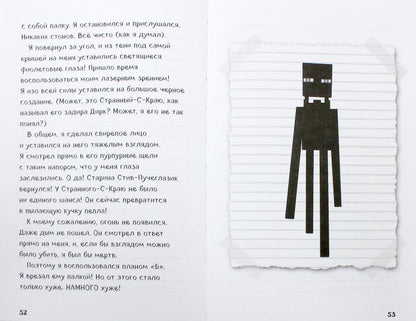 с собой палку. Я остановился и прислушался.
Никаких стонов. Всё чисто (как я думал).
Я повернул за угол, и из тени под самой
крышей на меня уставились светящиеся
фиолетовые глаза! Пришло время
воспользоваться моим лазерным зрением!
Я изо всей силы уставился на большое черное
создание. (Может, это Странней-С-Краю, как
называл его задира Дирк? Может, я его не так
понял?)
В общем, я сделал свирепое лицо
и уставился на него тяжелым взглядом.
Я смотрел прямо в его пурпурные щели
с таким напором, что у меня глаза
заслезились. О да! Старина Стив-Пучеглазик
вернулся! У Странного-С-Краю не было
ни единого шанса! Он сейчас превратится
в пылающую кучку пепла!
К моему сожалению, огонь не появился.
Даже дым не пошел. Он смотрел в ответ
прямо на меня, и, если бы взглядом можно
было убить, я был бы мертв.
Поэтому я воспользовался планом «Б».
Я врезал ему палкой! Но от этого стало
только хуже. НАМНОГО хуже!
52
53